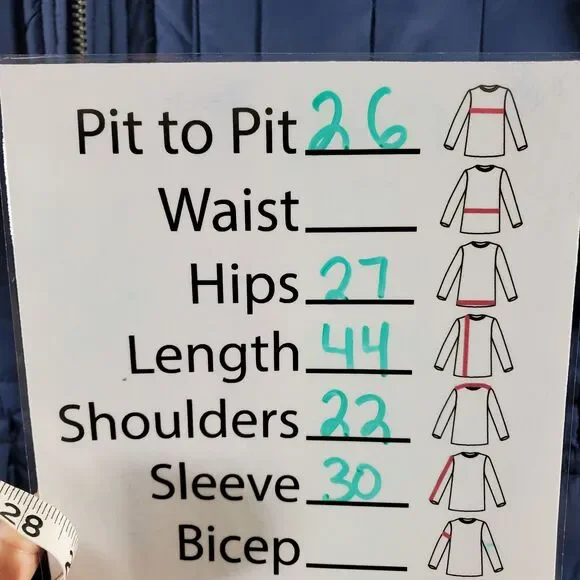 Pit to Pit 26
Waist
Hips 27
Length 44
Shoulders 22
Sleeve 30
Bicep
28